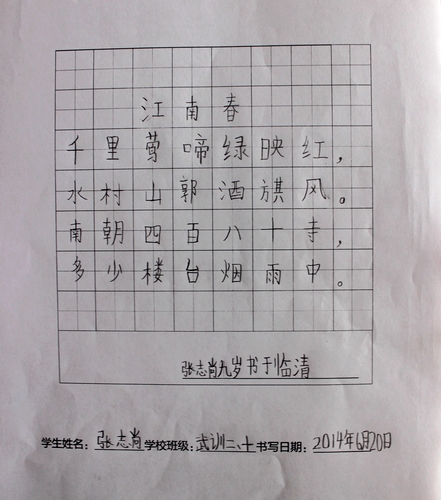 江南春
千里莺啼绿映红，
水村山郭酒旗风。
南朝四百八十寺，
多少楼台烟雨中。
张志肖九岁书于临清
学生姓名：张志肖学校班级：武训二、十书写日期：2014年6月20日